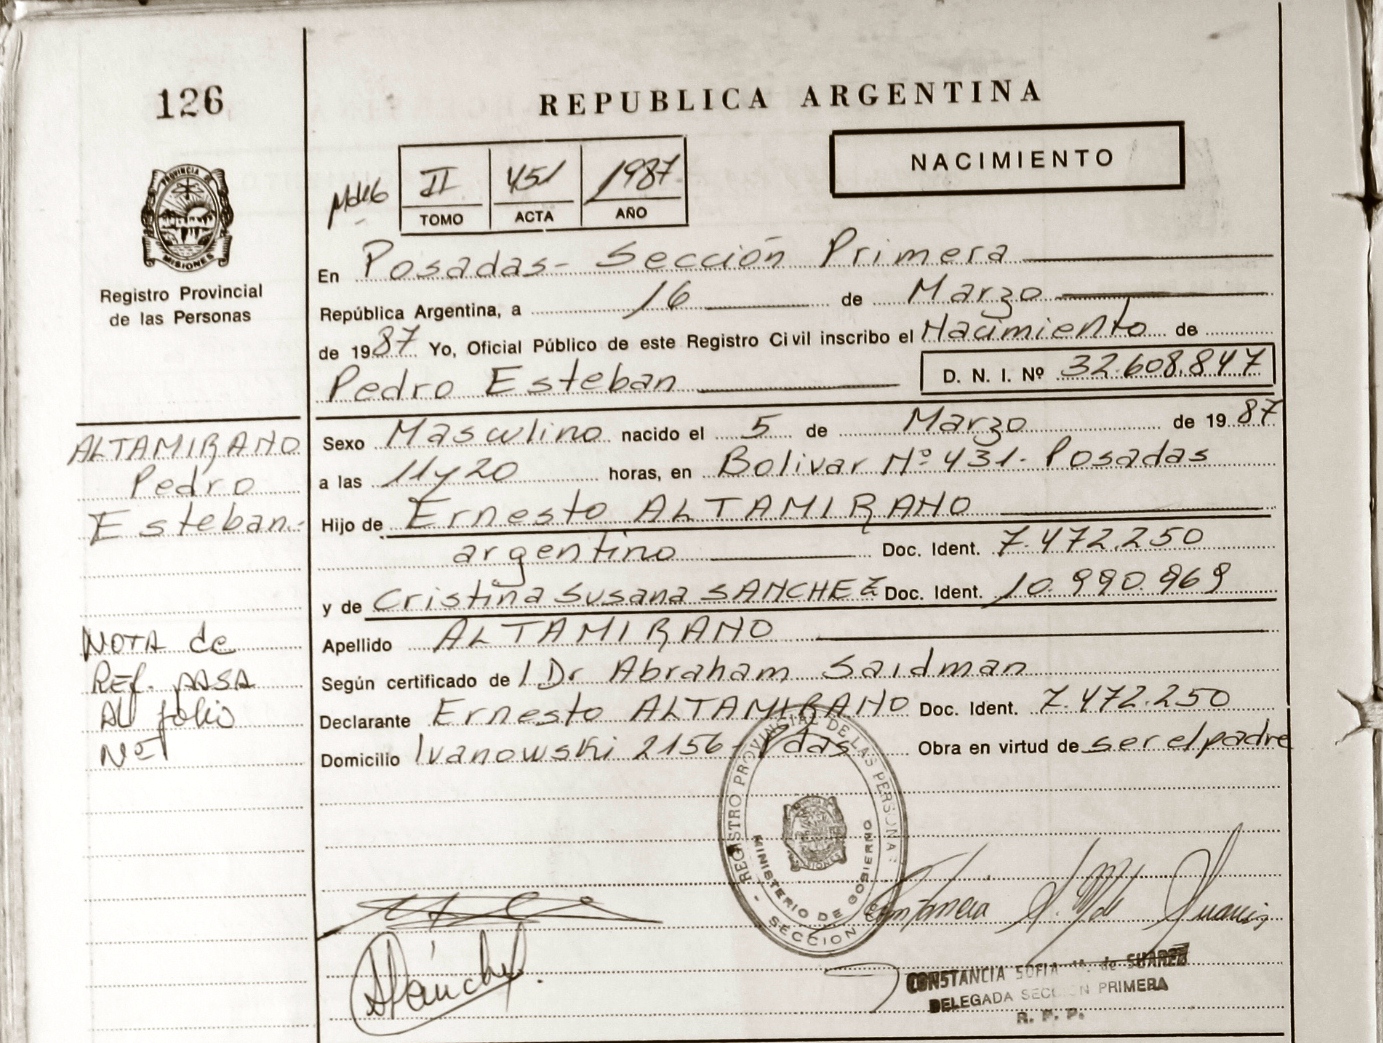 126
REPUBLICA ARGENTINA
NACIMIENTO
II 451 1987
TOMO ACTA AÑO
PROVINCIA DE MISIONES
Registro Provincial
de las Personas
En Posadas- Sección Primera
República Argentina, a 16 de Marzo
de 1987 Yo, Oficial Público de este Registro Civil inscribo el Nacimiento de
Pedro Esteban D. N. I. Nº 32.608.847
ALTAMIRANO
Pedro
Esteban.-
Sexo Masculino nacido el 5 de Marzo de 1987
a las 11 y 20 horas, en Bolivar Nº 431. Posadas
Hijo de Ernesto ALTAMIRANO
argentino Doc. Ident. 7.472.250
y de Cristina Susana SANCHEZ Doc. Ident. 10.990.969
NOTA de
Ref. PASA
AL folio
Apellido ALTAMIRANO
Según certificado de / Dr Abraham Saidman
Declarante Ernesto ALTAMIRANO Doc. Ident. 7.472.250
Domicilio Ivanowski 2156- Pdas Obra en virtud de ser el padre
REGISTRO PROVINCIAL DE LAS PERSONAS
MINISTERIO DE GOBIERNO
SECCION
CONSTANCIA SOFIA de SUAREZ
DELEGADA SECCION PRIMERA
R. P. P.